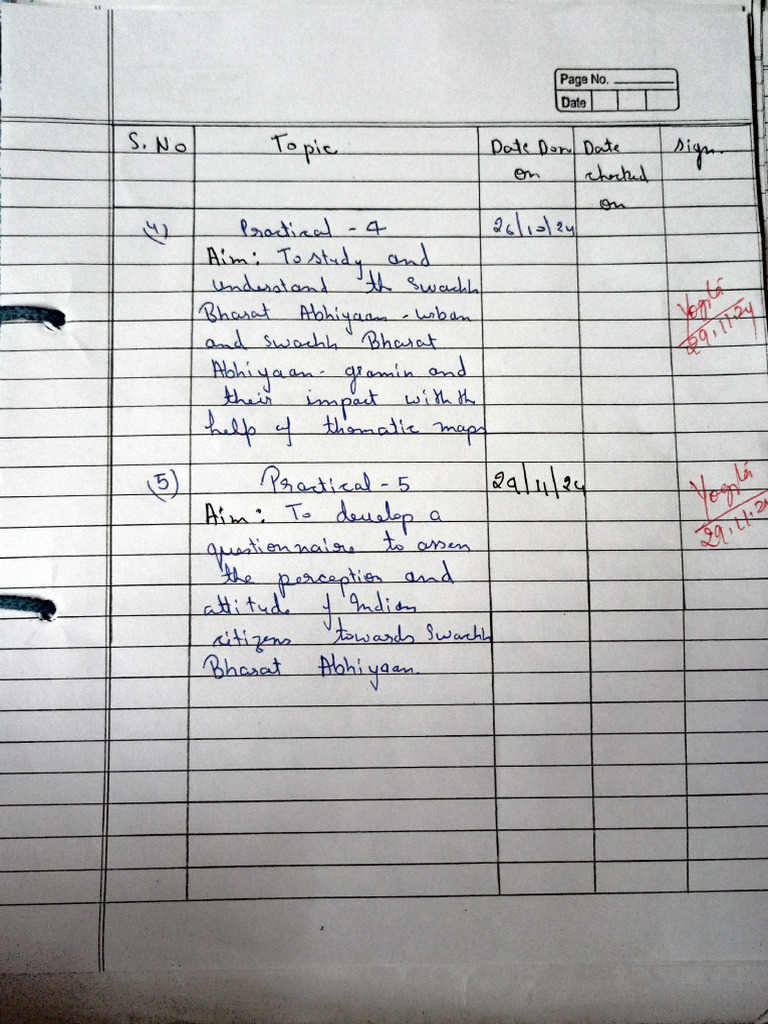 Page No.
Date
S. No Topic Date Don Date Sign.
on checked
on
(4) Practical - 4 26/10/24
Aim: To study and
understand th Swachh
Bharat Abhiyaan - urban
and swachh Bharat
Abhiyaan - gramin and
their impact with th
help of thematic maps
29.11.24
(5) Practical - 5 29/11/24
Aim: To develop a
questionnaire to assess
the perception and
attitude of Indian
citizens towards Swachh
Bharat Abhiyaan.
29.11.2